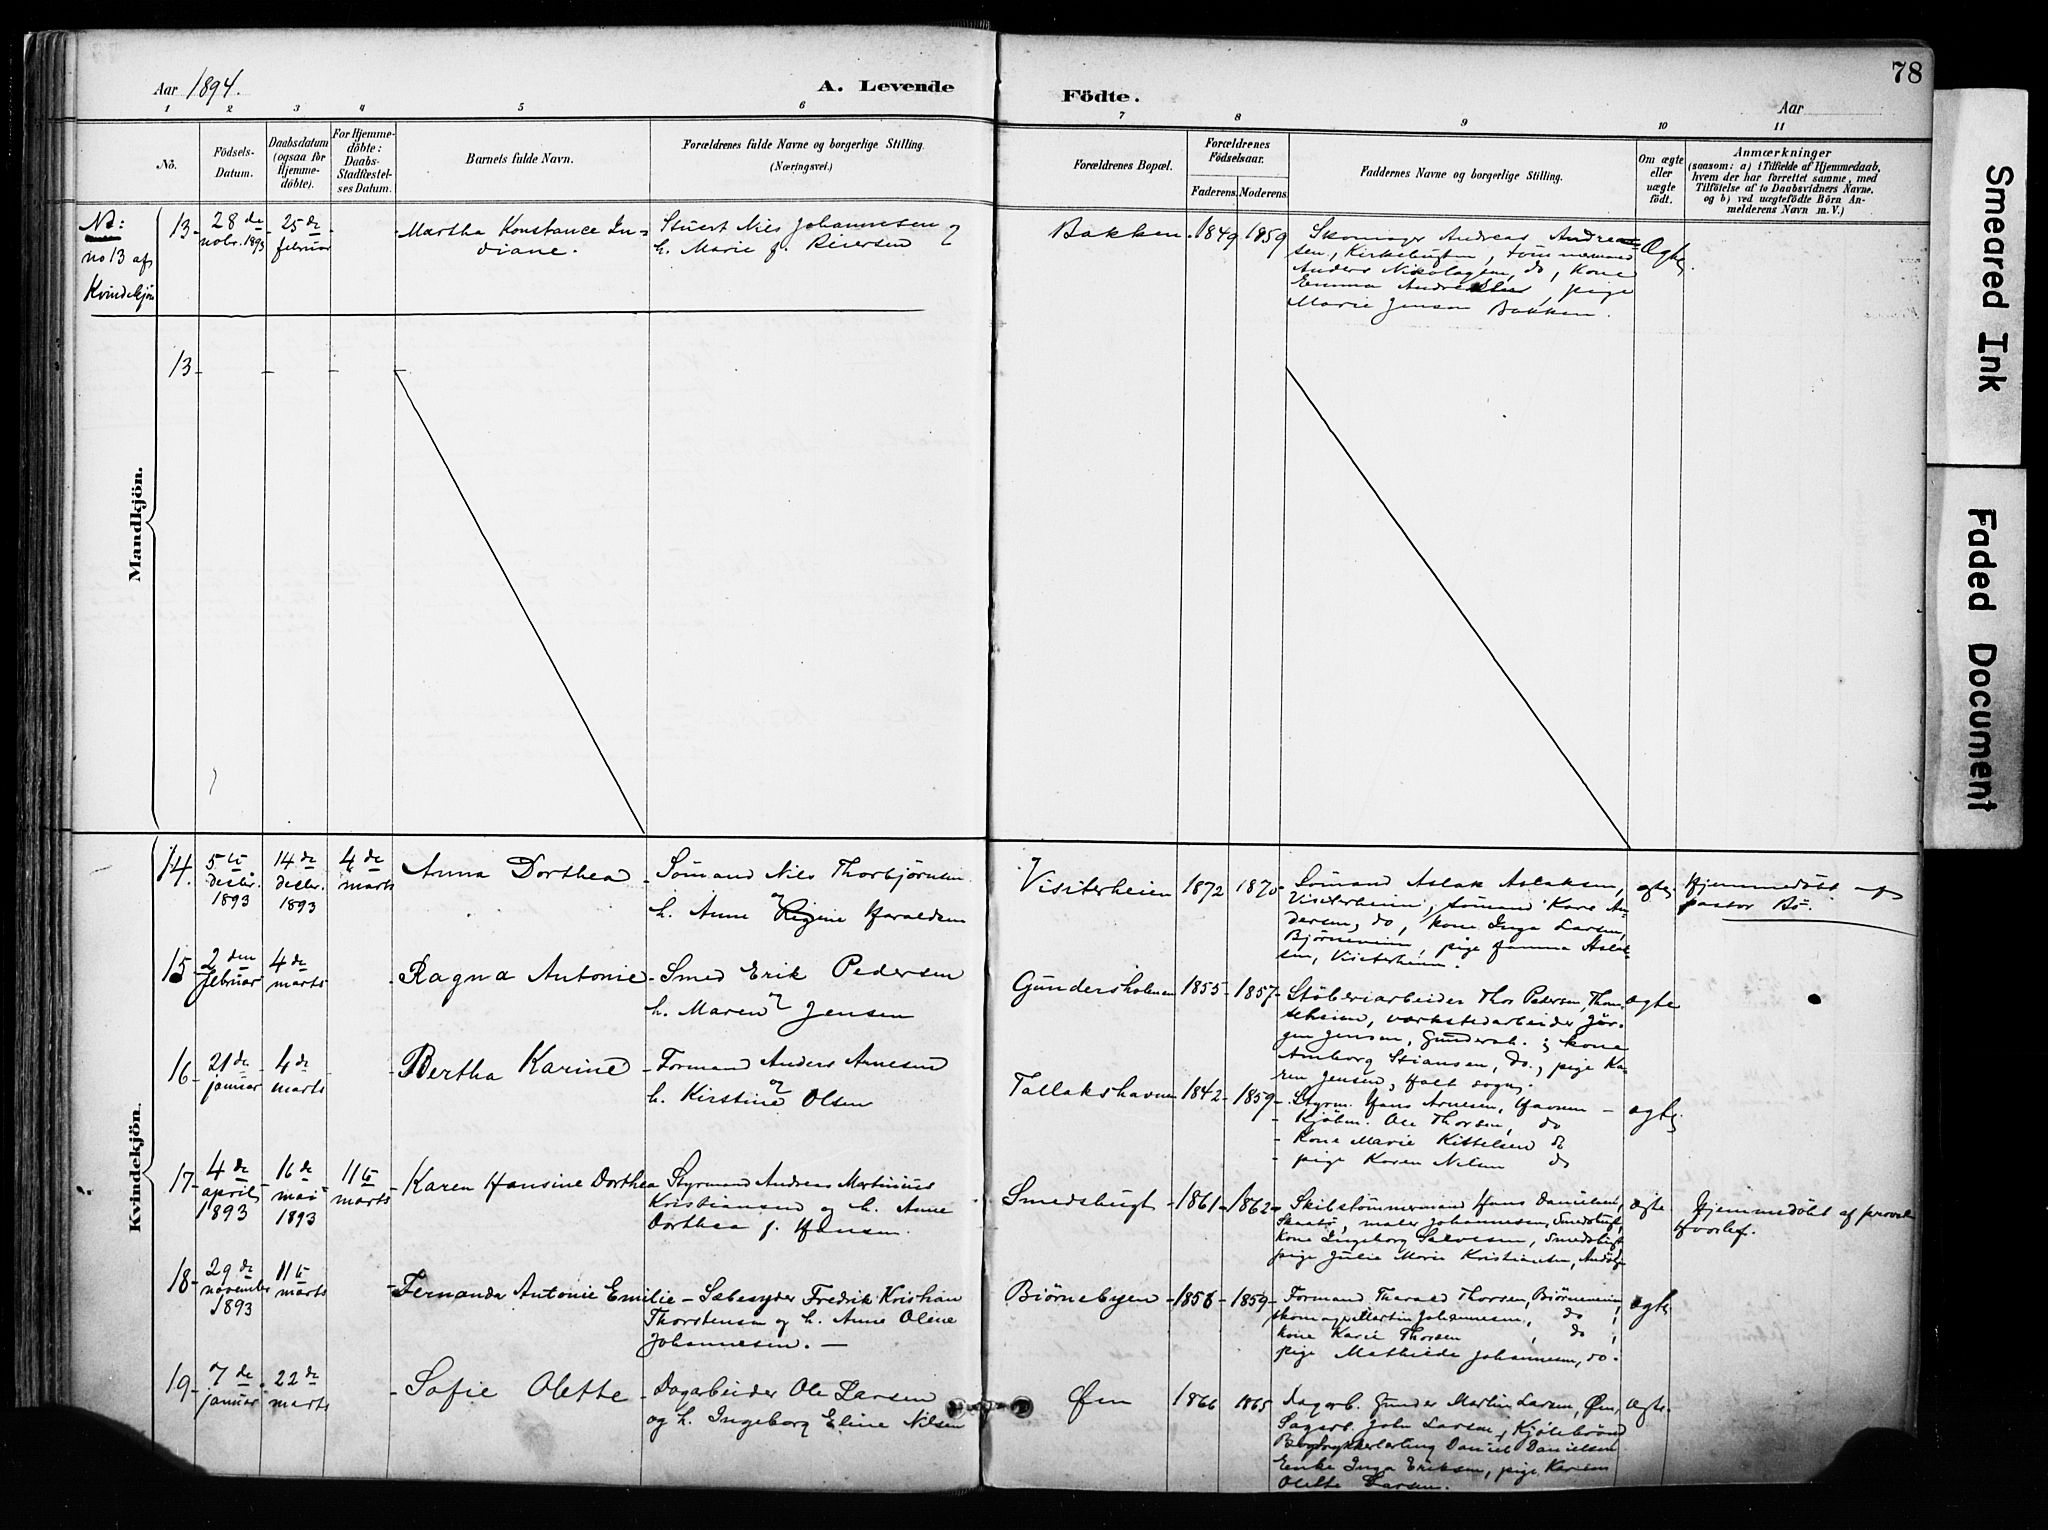 78
Aar 1894.
A. Levende
Födte.
Aar
1 2 3 4 5 6 7 8 9 10 11
No.
Födsels-
Datum.
Daabsdatum
(ogsaa for
Hjemme-
döbte).
For Hjemme-
döbte:
Daabs-
Stadfæstel-
ses Datum.
Barnets fulde Navn.
Forældrenes fulde Navne og borgerlige Stilling.
(Næringsvei.)
Forældrenes Bopæl.
Forældrenes
Födselsaar.
Faderens. Moderens.
Faddernes Navne og borgerlige Stilling.
Om ægte
eller
uægte
födt.
Anmærkninger
(saasom: a) i Tilfælde af Hjemmedaab,
hvem der har forrettet samme, med
Tilföielse af to Daabsvidners Navne,
og b) ved uægtefödte Börn An-
melderens Navn m. V.)
NB:
no 13 af
Kvindekjön
13
28de
novbr. 1893
25de
februar
Martha Konstance In-
diane.
Stuert Nils Johannesen og
h. Marie f. Reiersen
Bakken
1849
1859
Skomager Andreas Andrea-
sen, Kirkebugten, tømmermand
Anders Nikolaysen, do, Kone
Emma, pige
Marie Jensen Bakken.
Ægte
Mandkjön.
13
Kvindekjön.
14.
5te
decbr.
1893
14de
decbr.
1893
4de
marts
Anna Dorthea
Sømand Nils Thorbjørnsen
og
h. Anne Regine Haraldsen
Visterheien
1872
1870
Sømand Aslak Aslaksen,
Visterheien, sømand Karl An-
dersen, do, kone Inga Larsen,
Bjørneveien, pige Hanna Aslak-
sen, Visterheien.
ægte
Hjemmedøbt af
pastor Bö
15
2den
februar
4de
marts
Ragna Antonie
Smed Erik Pedersen
og
h. Maren Jensen
Gundersholmen
1855
1857
Støberiarbeider Thor Pedersen, Thom-
seheien, værkstedarbeider Jør-
gen Jensen, Gundersh.; kone
Amborg Stiansen, do., pige Ka-
ren Jensen, Holt sogn.
ægte
16
21de
januar
4de
marts
Bertha Karine
Formand Anders Arnesen
og
h. Kirstine Olsen
Tallakshavnen
1842
1859
Styrm. Hans Arnesen, Havnen
Kjøbm. Ole Thorsen, do
Kone Marie Kittelsen do
pige Karen Nilsen do
ægte
17
4de
april
1893
16de
mai
1893
11te
marts
Karen Hansine Dorthea
Styrmand Andreas Martinius
Kristiansen og h. Anne
Dorthea f. Hansen.
Smedsbugt
1861
1862
Skibstømmermand Hans Danielsen,
Skaatø, maler Johannesen, Smedsbugt,
kone Ingeborg Salvesen, Smedsbugt
pige Julie Marie Kristiansen,
ægte
Hjemmedøbt af provst
Hvoslef.
18
29de
november
1893
11te
marts
Fernanda Antonie Emilie
Sæbesyder Fredrik Kristian
Thorstensen og h. Anne Oline
Johannesen.
Bjørnebyen
1856
1859
Formand Tharald Thorsen, Bjørneveien,
skomager Martin Johannesen, do,
kone Karie Thorsen, do,
pige Mathilde Johannesen, do.
ægte
19
7de
januar
22de
marts
Sofie Olette
Dagarbeider Ole Larsen
og h. Ingeborg Eline Nilsen
Øen
1866
1865
Dagarb. Gunder Martin Larsen, Øen,
Sagarb. John Larsen, Kjølebrønd
Bogtrykkerlærling Daniel Danielsen
Enke Inga Eriksen, pige Karine
Olette Larsen.
Ægte
Smeared Ink
Faded Document